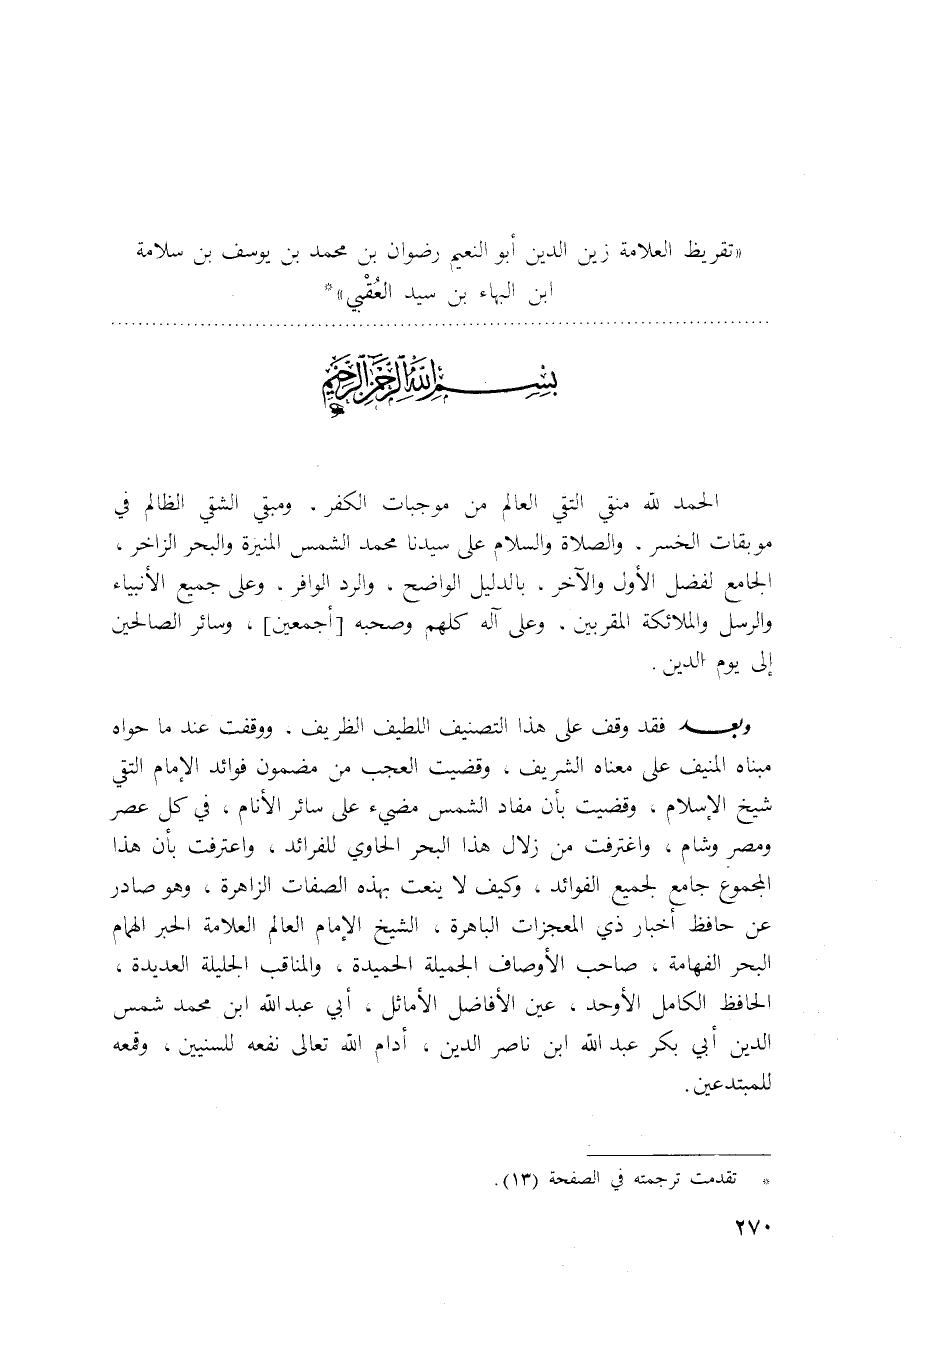 «تقريظ العلامة زين الدين أبو النعيم رضوان بن محمد بن يوسف بن سلامة
ابن البهاء بن سيد العُقْبي»*
بسم الله الرحمن الرحيم
الحمد لله منقي التقي العالم من موجبات الكفر . ومبقي الشقي الظالم في
موبقات الخسر . والصلاة والسلام على سيدنا محمد الشمس المنيرة والبحر الزاخر ،
الجامع لفضل الأول والآخر . بالدليل الواضح . والرد الوافر . وعلى جميع الأنبياء
والرسل والملائكة المقربين . وعلى آله كلهم وصحبه [أجمعين] ، وسائر الصالحين
إلى يوم الدين .
وبعــد فقد وقف على هذا التصنيف اللطيف الظريف . ووقفت عند ما حواه
مبناه المنيف على معناه الشريف ، وقضيت العجب من مضمون فوائد الإمام التقي
شيخ الإسلام ، وقضيت بأن مفاد الشمس مضيء على سائر الأنام ، في كل عصر
ومصر وشام ، واغترفت من زلال هذا البحر الحاوي للفرائد ، واعترفت بأن هذا
المجموع جامع لجميع الفوائد ، وكيف لا ينعت بهذه الصفات الزاهرة ، وهو صادر
عن حافظ أخبار ذي المعجزات الباهرة ، الشيخ الإمام العالم العلامة الحبر الهمام
البحر الفهامة ، صاحب الأوصاف الجميلة الحميدة ، والمناقب الجليلة العديدة ،
الحافظ الكامل الأوحد ، عين الأفاضل الأماثل ، أبي عبدالله ابن محمد شمس
الدين أبي بكر عبد الله ابن ناصر الدين ، أدام الله تعالى نفعه للسنيين ، وقمعه
للمبتدعين .
* تقدمت ترجمته في الصفحة (١٣) .
٢٧٠